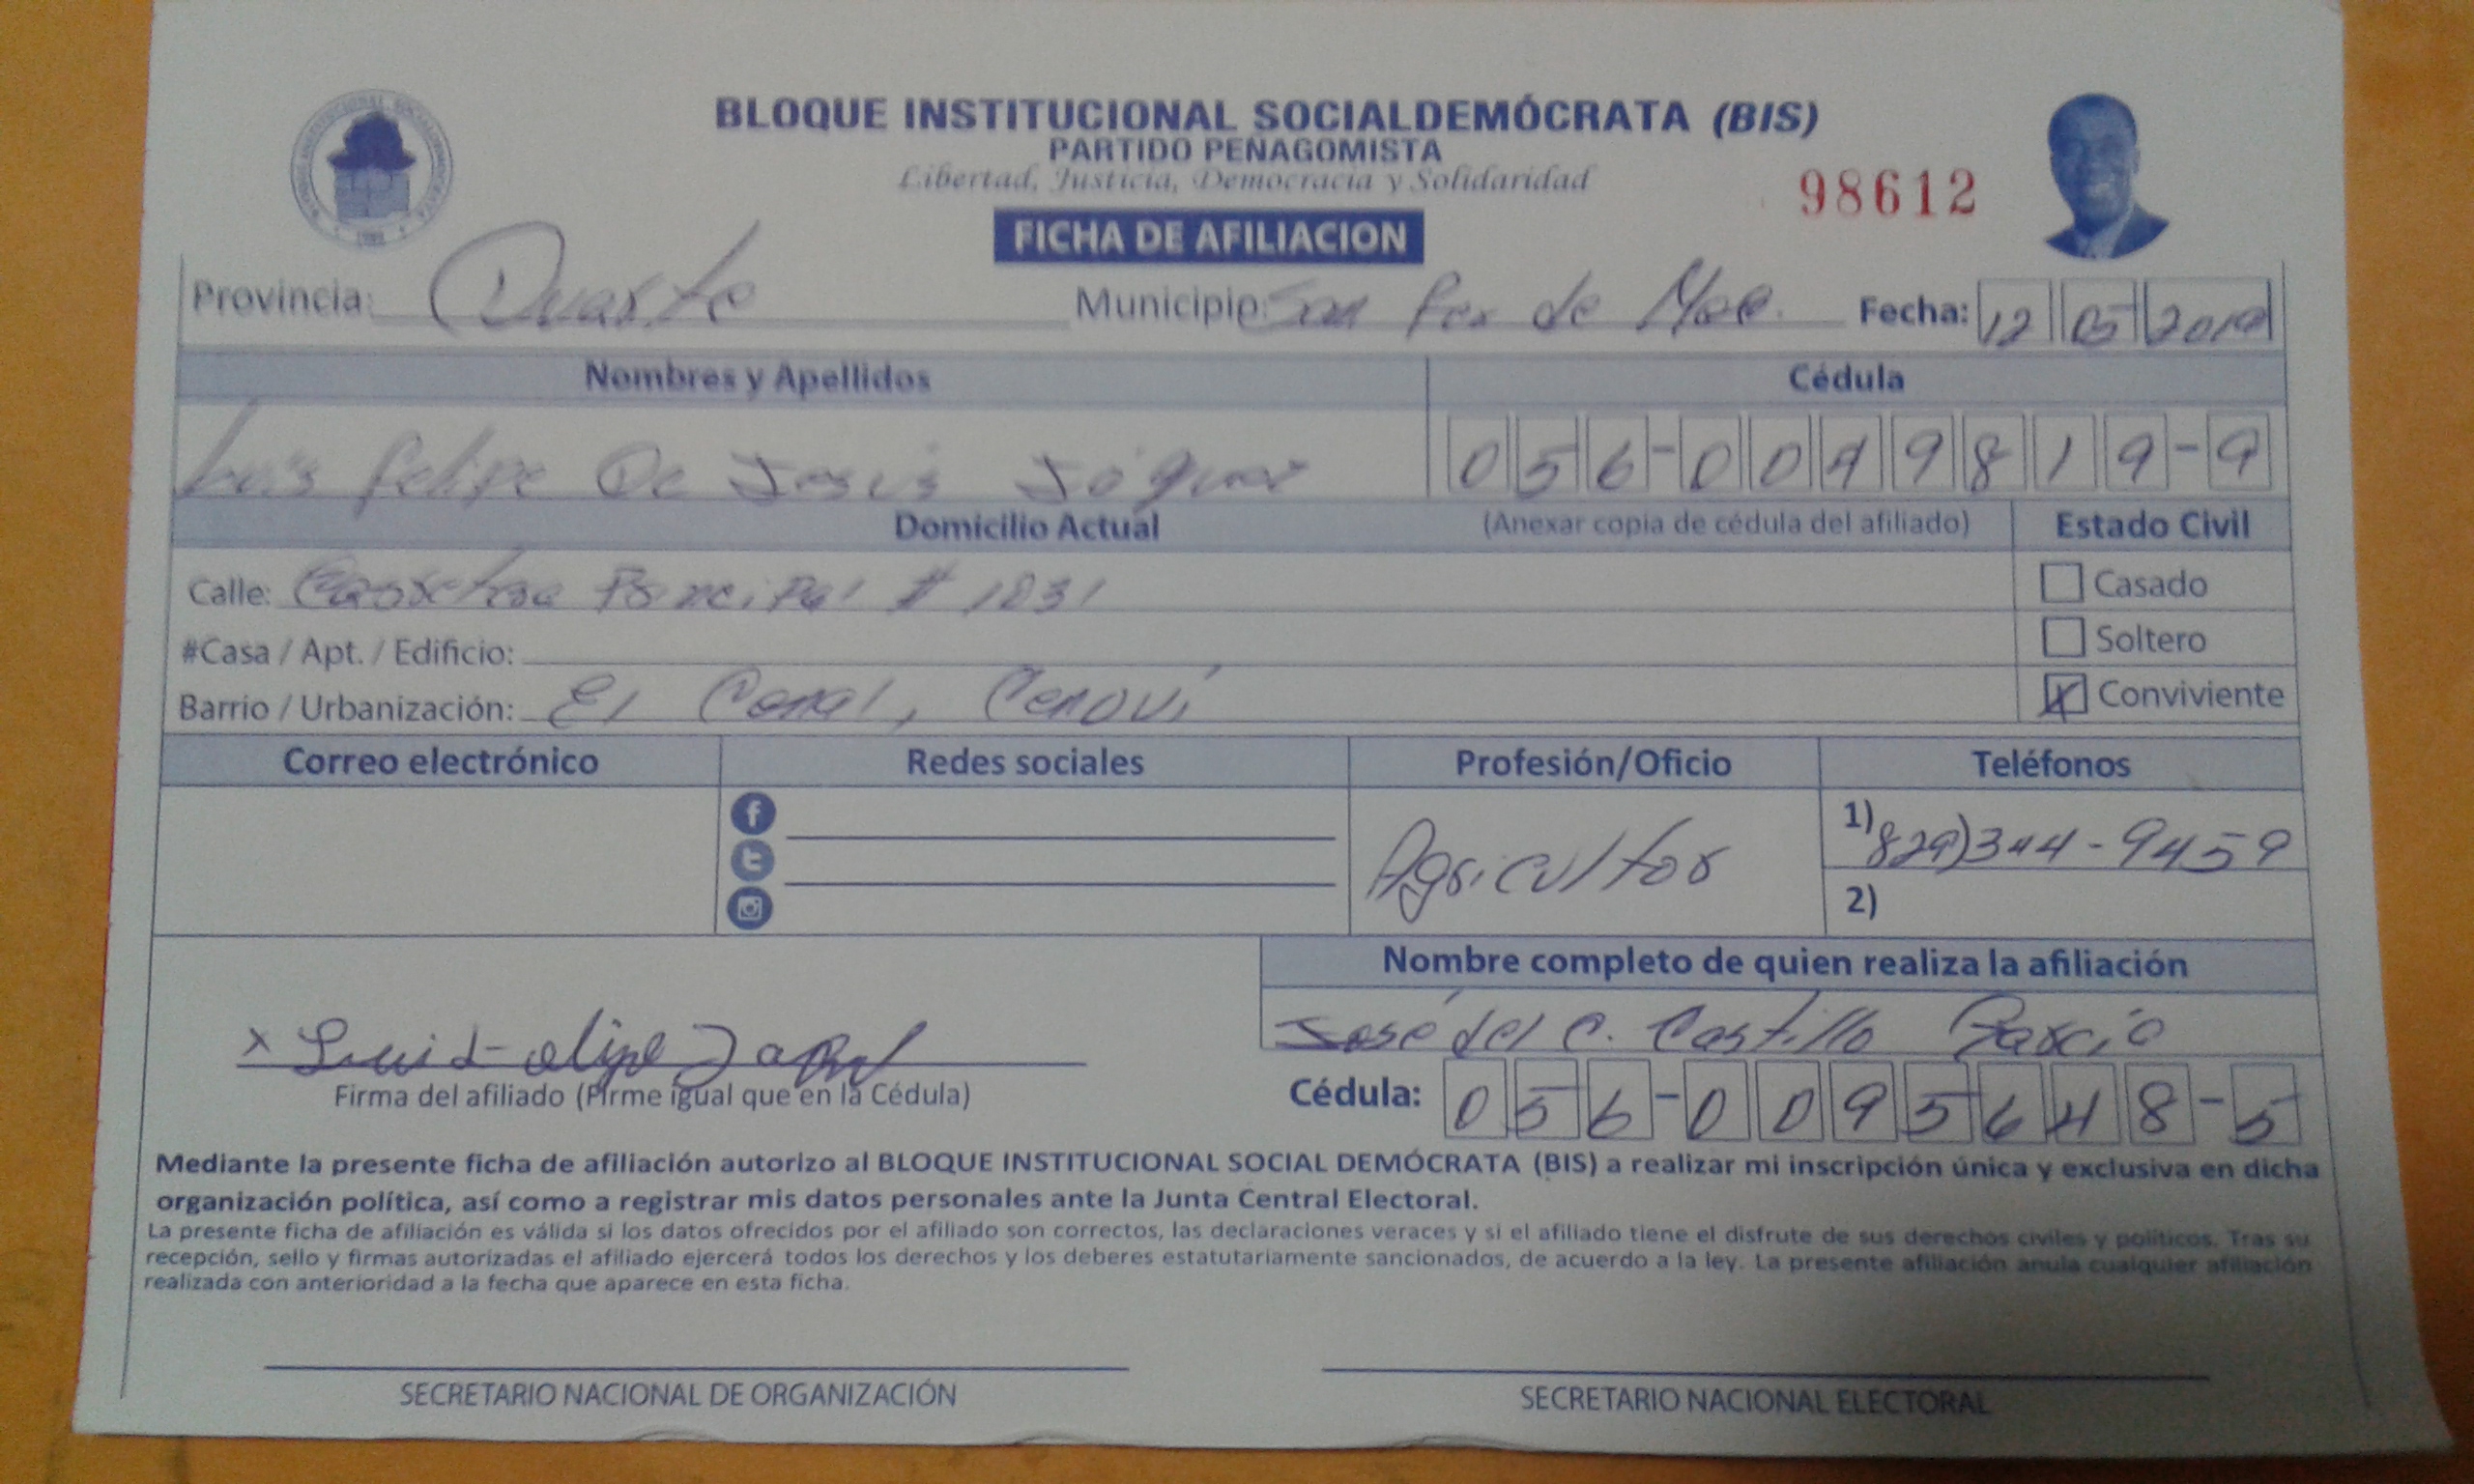 BLOQUE INSTITUCIONAL SOCIALDEMÓCRATA (BIS)
PARTIDO PEÑAGOMISTA
Libertad, Justicia, Democracia y Solidaridad
98612
FICHA DE AFILIACION
Provincia: Duarte Municipio: San de Fecha: 12 05
Nombres y Apellidos Cédula
Luis Felipe De Jesús 056-0049819-9
Domicilio Actual (Anexar copia de cédula del afiliado) Estado Civil
Calle: # 1031 Casado
#Casa / Apt. / Edificio: Soltero
Barrio / Urbanización: El Cenoví X Conviviente
Correo electrónico Redes sociales Profesión/Oficio Teléfonos
Agricultor
1) 829)344-9459
2)
Nombre completo de quien realiza la afiliación
José del C. Castillo García
x
Firma del afiliado (Firme igual que en la Cédula) Cédula: 056-0095648-5
Mediante la presente ficha de afiliación autorizo al BLOQUE INSTITUCIONAL SOCIAL DEMÓCRATA (BIS) a realizar mi inscripción única y exclusiva en dicha
organización política, así como a registrar mis datos personales ante la Junta Central Electoral.
La presente ficha de afiliación es válida si los datos ofrecidos por el afiliado son correctos, las declaraciones veraces y si el afiliado tiene el disfrute de sus derechos civiles y políticos. Tras su
recepción, sello y firmas autorizadas el afiliado ejercerá todos los derechos y los deberes estatutariamente sancionados, de acuerdo a la ley. La presente afiliación anula cualquier afiliación
realizada con anterioridad a la fecha que aparece en esta ficha.
SECRETARIO NACIONAL DE ORGANIZACIÓN SECRETARIO NACIONAL ELECTORAL